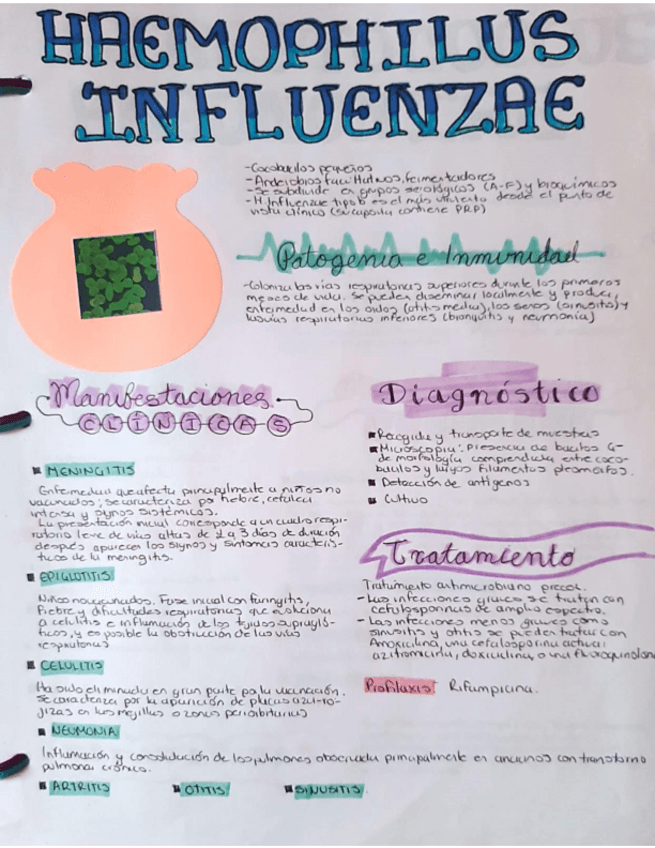 HAEMOPHILUS
INFLUENZAE
-Cocobacilos pequeños
-Anaerobios facultativos, fermentadores
-Se subdivide en grupos serológicos (A-F) y bioquímicos
-H. Influenzae tipo b es el más virulento desde el punto de
vista clínico (su capsula contiene PRP)
Patogenia e Inmunidad
-Coloniza las vías respiratorias superiores durante los primeros
meses de vida. Se pueden diseminar localmente y producir
enfermedad en los oidos (otitis media), los senos (sinusitis) y
las vías respiratorias inferiores (bronquitis y neumonía)
Manifestaciones
CLÍNICAS
MENINGITIS
Enfermedad que afecta principalmente a niños no
vacunados; se caracteriza por fiebre, cefalea
intensa y signos sistémicos.
La presentación inicial corresponde a un cuadro respi-
ratorio leve de vías altas de 1 a 3 días de duración
después aparecen los signos y síntomas caracterís-
ticos de la meningitis.
EPIGLOTITIS
Niños no vacunados. Fase inicial con faringitis,
fiebre y dificultades respiratorias que evoluciona
a celulitis e inflamación de los tejidos supragló-
ticos, y es posible la obstrucción de las vías
respiratorias
CELULITIS
Ha sido eliminada en gran parte por la vacunación.
Se caracteriza por la aparición de placas azul-ro-
jizas en las mejillas o zonas periorbitarias
NEUMONIA
Inflamación y consolidación de los pulmones observada principalmente en ancianos con transtorno
pulmonar crónico.
ARTRITIS OTITIS SINUSITIS
Diagnóstico
Recogida y transporte de muestras
Microscopía: Presencia de bacilos G-
de morfología comprendida entre coco-
bacilos y largos filamentos pleomorfos.
Detección de antígenos
Cultivo
Tratamiento
Tratamiento antimicrobiano precoz.
-Las infecciones graves se tratan con
cefalosporinas de amplio espectro.
- Las infecciones menos graves como
sinusitis y otitis se pueden tratar con
Amoxicilina, una cefalosporina activa,
azitromicina, doxiciclina, o una fluoroquinolona
Profilaxis: Rifampicina.